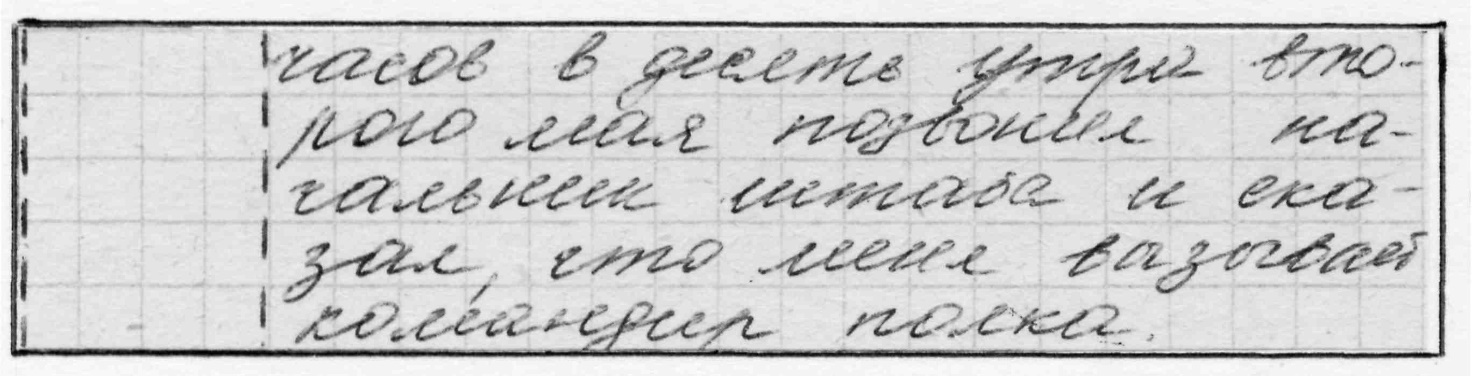 часов в десять утра вто-
рого мая позвонил на-
чальник штаба и ска-
зал, что меня вызывает
командир полка.